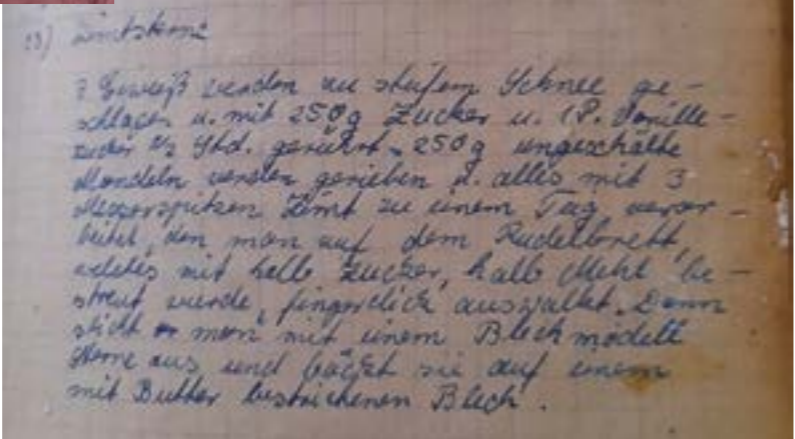 Zimtsterne
Eiweiß werden zu steifem Schnee ge-
schlagen u. mit 250g Zucker u. 1 P. Vanille-
zucker ½ Std. gerührt. 250g ungeschälte
Mandeln werden gerieben u. alles mit 3
Messerspitzen Zimt zu einem Teig verar-
beitet, den man auf dem Nudelbrett,
welches mit halb Zucker, halb Mehl be-
streut wurde, fingerdick auswalkt. Dann
sticht man mit einem Blechmodell
Sterne aus und bäckt sie auf einem
mit Butter bestrichenen Blech.